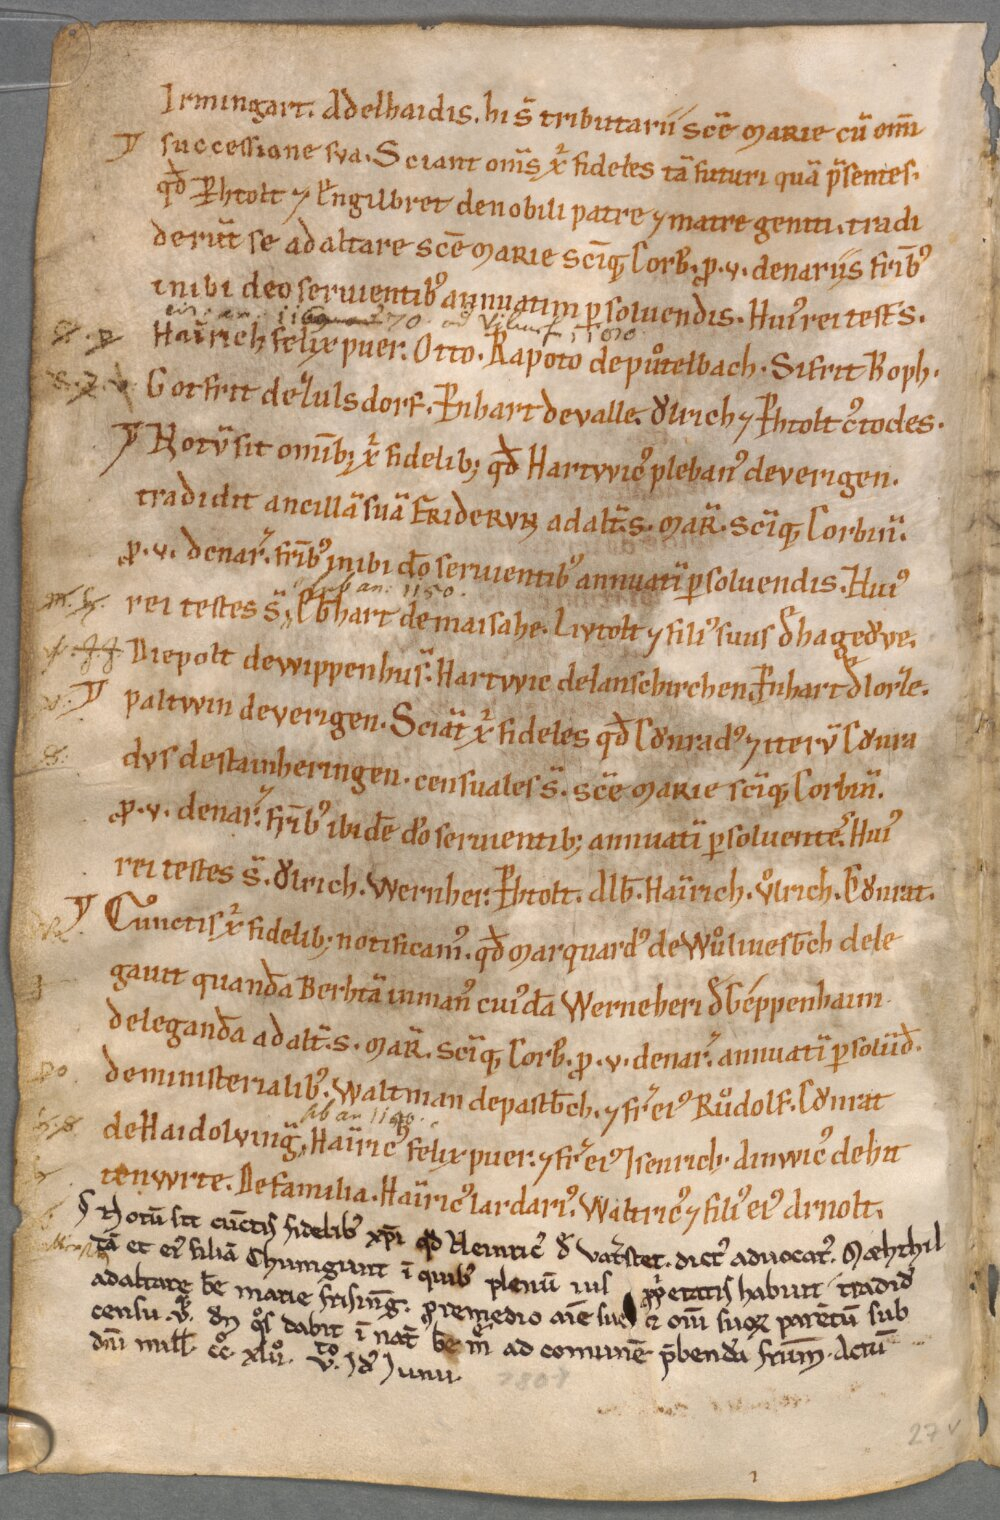 Irmingart. Adelhaidis. hi s̄ tributarii scē MARIE cū om̄i
successione sua. Sciant om̄s xp̄i fideles tā futuri quā p̄sentes.
qđ P̄htolt ⁊ Engilbret de nobili patre ⁊ matre geniti. tradi
derūt se ad altare scē MARIE scīq; Corb. p̱. v. denariis fr̄ib⁹
inibi deo seruientib⁹ annuatim p̱soluendis. Hui⁹ rei testes.
Hainrich felix puer. Otto. Rapoto de půtelbach. Sifrit Roph.
Gotfrit de Iulsdorf. Enhart de valle. Ulrich ⁊ P̄htolt c̄todes.
Notū sit om̄ib; xp̄i fidelib; qđ Hartwic⁹ pleban⁹ de verigen.
tradidit ancillā suā FRIDERVN ad alt̄. s. MAR̄. scīq; Corbin̄.
p̱. v. denar̄. fr̄ib⁹ inibi dō seruientib⁹ annuatī p̱soluendis. Hui⁹
sub an. 1150.
rei testes s̄. Ebhart de maisahe. Livtolt ⁊ fili⁹ suus
Diepolt de wippenhus̄. Hartwic de lanschirchen. Enhart
paltwin de verigen. Sciāt xp̄i fideles qđ Cůnrad⁹ ⁊ iterū Cůnra
dus de stainheringen. censuales s̄. scē MARIE scīq; Corbin̄.
p̱. v. denar̄. fr̄ib⁹ ibidē dō seruientib; annuatī p̱soluente. Hui⁹
rei testes s̄. Ulrich. Wernher. P̄htolt. Alb. Hainrich. Ůlrich. Cůnrat.
Cůnctis xp̄i fidelib; notificam⁹. qđ Marquard⁹ de Wůlnesb̄ch dele
gauit quandā Berhtā in man⁹ cui⁹dā Werneheri đ Géppenhaim
delegandā ad alt̄. s. MAR̄. scīq; Corb. p̱. v. denar̄. annuatī p̱solūđ.
de ministerialib⁹. Waltman de pastb̄ch. ⁊ fr̄ ei⁹ Růdolf. Cůnrat
de Haidolvinḡ. Hainric⁹ felix puer. ⁊ fr̄ ei⁹ Isenrich. Dinwic⁹ de hit
tenwrte. De familia. Hainric⁹ lardari⁹. Waltric⁹ ⁊ fili⁹ ei⁹ Arnolt.
Notū sit cūctis fidelib⁹ xp̄i qđ Heinric⁹ đ Vat̄stet. dict⁹ aduocat⁹. Mæhthil
tā et ei⁹ filiā Chunigunt ī quib⁹ plenū ius p̱p̄etatis habuit tradiđ
ad altare b̄e marie frisinḡ. p̱ remedio aīe sue ⁊ oīu suoꝝ parētū sub
censu .v. dn̄ q̊s dabit ī nat̄ b̄e m̄ ad comunē p̄bendā fr̄um. Actū
dn̄i mill̄. cc̄. xlv. v.to Iđ Iunii.
27 v